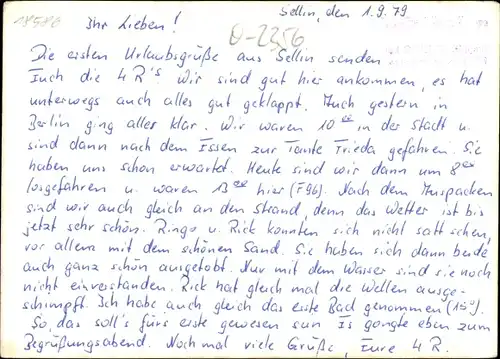 18586
Sellin, den 1.9.79
Ihr Lieben!
0-2356
Die ersten Urlaubsgrüße aus Sellin senden
Euch die 4 R's. Wir sind gut hier ankommen, es hat
unterwegs auch alles gut geklappt. Auch gestern in
Berlin ging aller klar. Wir waren 10⁰⁰ in der Stadt u.
sind dann nach dem Essen zur Tante Frieda gefahren. Sie
haben uns schon erwartet. Heute sind wir dann um 8⁰⁰
losgefahren u. waren 13⁰⁰ hier (F96). Nach dem Auspacken
sind wir auch gleich an den Strand, denn das Wetter ist bis
jetzt sehr schön. Ringo u. Rick konnten sich nicht satt sehen,
vor allem mit dem schönen Sand. Sie haben sich dann beide
auch ganz schön ausgetobt. Nur mit dem Wasser sind sie noch
nicht einverstanden. Rick hat gleich mal die Wellen ausge-
schimpft. Ich habe auch gleich das erste Bad genommen (15°)
So, das soll's fürs erste gewesen sein. Es gongte eben zum
Begrüßungsabend. Noch mal viele Grüße, Eure 4 R.